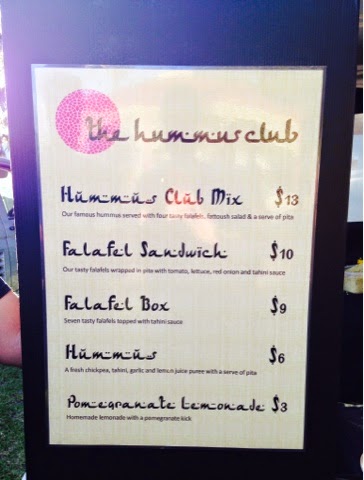 the hummus club
Hummus Club Mix $13
Our famous hummus served with four tasty falafels, fattoush salad & a serve of pita
Falafel Sandwich $10
Our tasty falafels wrapped in pita with tomato, lettuce, red onion and tahini sauce
Falafel Box $9
Seven tasty falafels topped with tahini sauce
Hummus $6
A fresh chickpea, tahini, garlic and lemon juice puree with a serve of pita
Pomegranate Lemonade $3
Homemade lemonade with a pomegranate kick